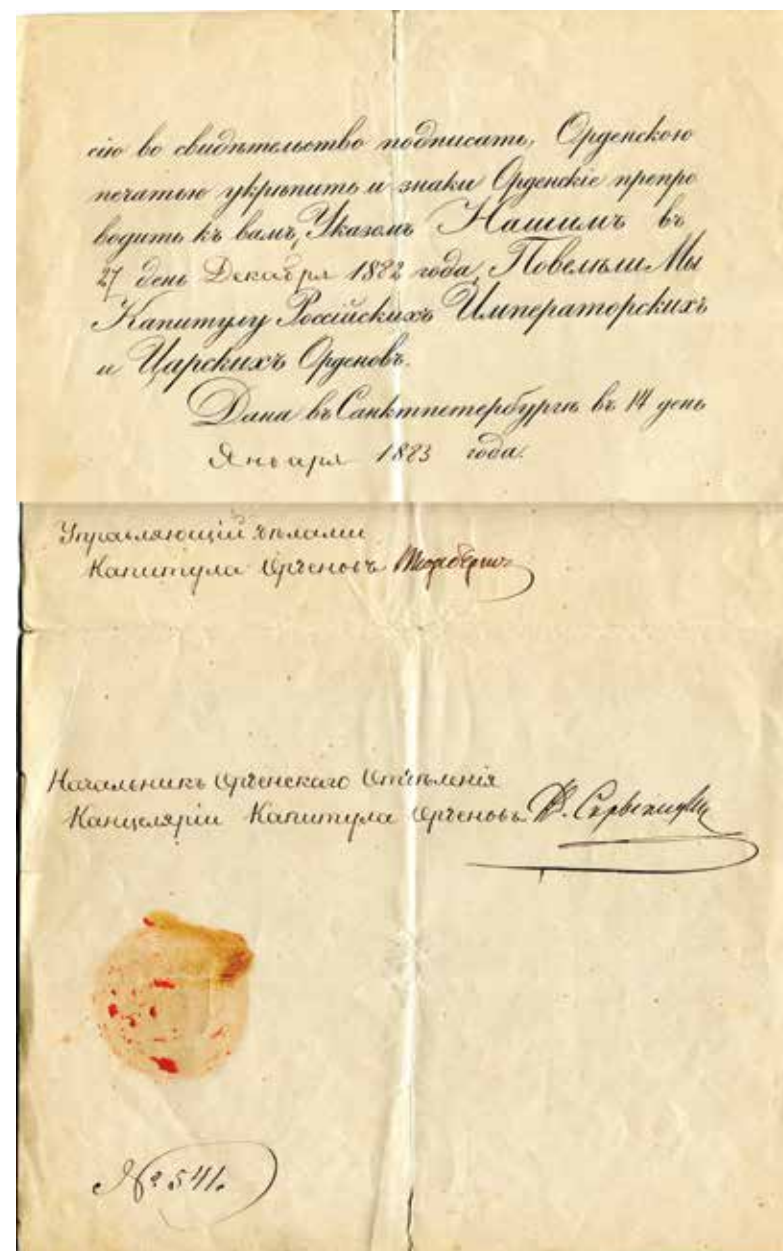 сію во свидѣтельство подписать, Орденскою
печатью укрѣпить и знаки Орденскіе препро
водить къ вамъ, Указомъ Нашимъ въ
27 день Декабря 1882 года, Повелѣли Мы
Капитулу Россійскихъ Императорскихъ
и Царскихъ Орденовъ.
Дана въ Санктпетербургѣ въ 14 день
Января 1883 года.
Управляющій дѣлами
Капитула Орденовъ
Начальникъ Орденскаго Отдѣленія
Канцеляріи Капитула Орденовъ
№ 541.